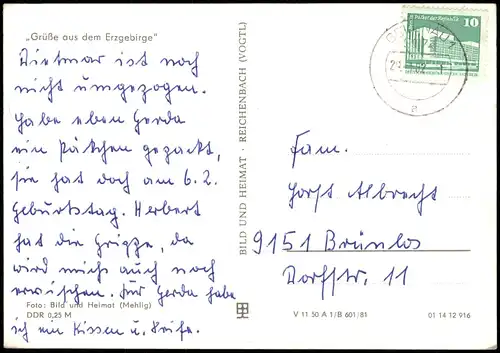 „Grüße aus dem Erzgebirge“
Dietmar ist noch
nicht umgezogen.
Habe eben Gerda
ein Päkchen gepackt,
sie hat doch am 6.2.
Geburtstag. Herbert
hat die Grippe, da
wird mich auch noch
erwischen. Für Gerda habe
ich ein Kissen u. Seife.
Foto: Bild und Heimat (Mehlig)
DDR 0,25 M
BILD UND HEIMAT · REICHENBACH (VOGTL)
10
Fam.
Horst Albrecht
9151 Brünlos
Dorfstr. 11
V 11 50 A 1/B 601/81
01 14 12 916